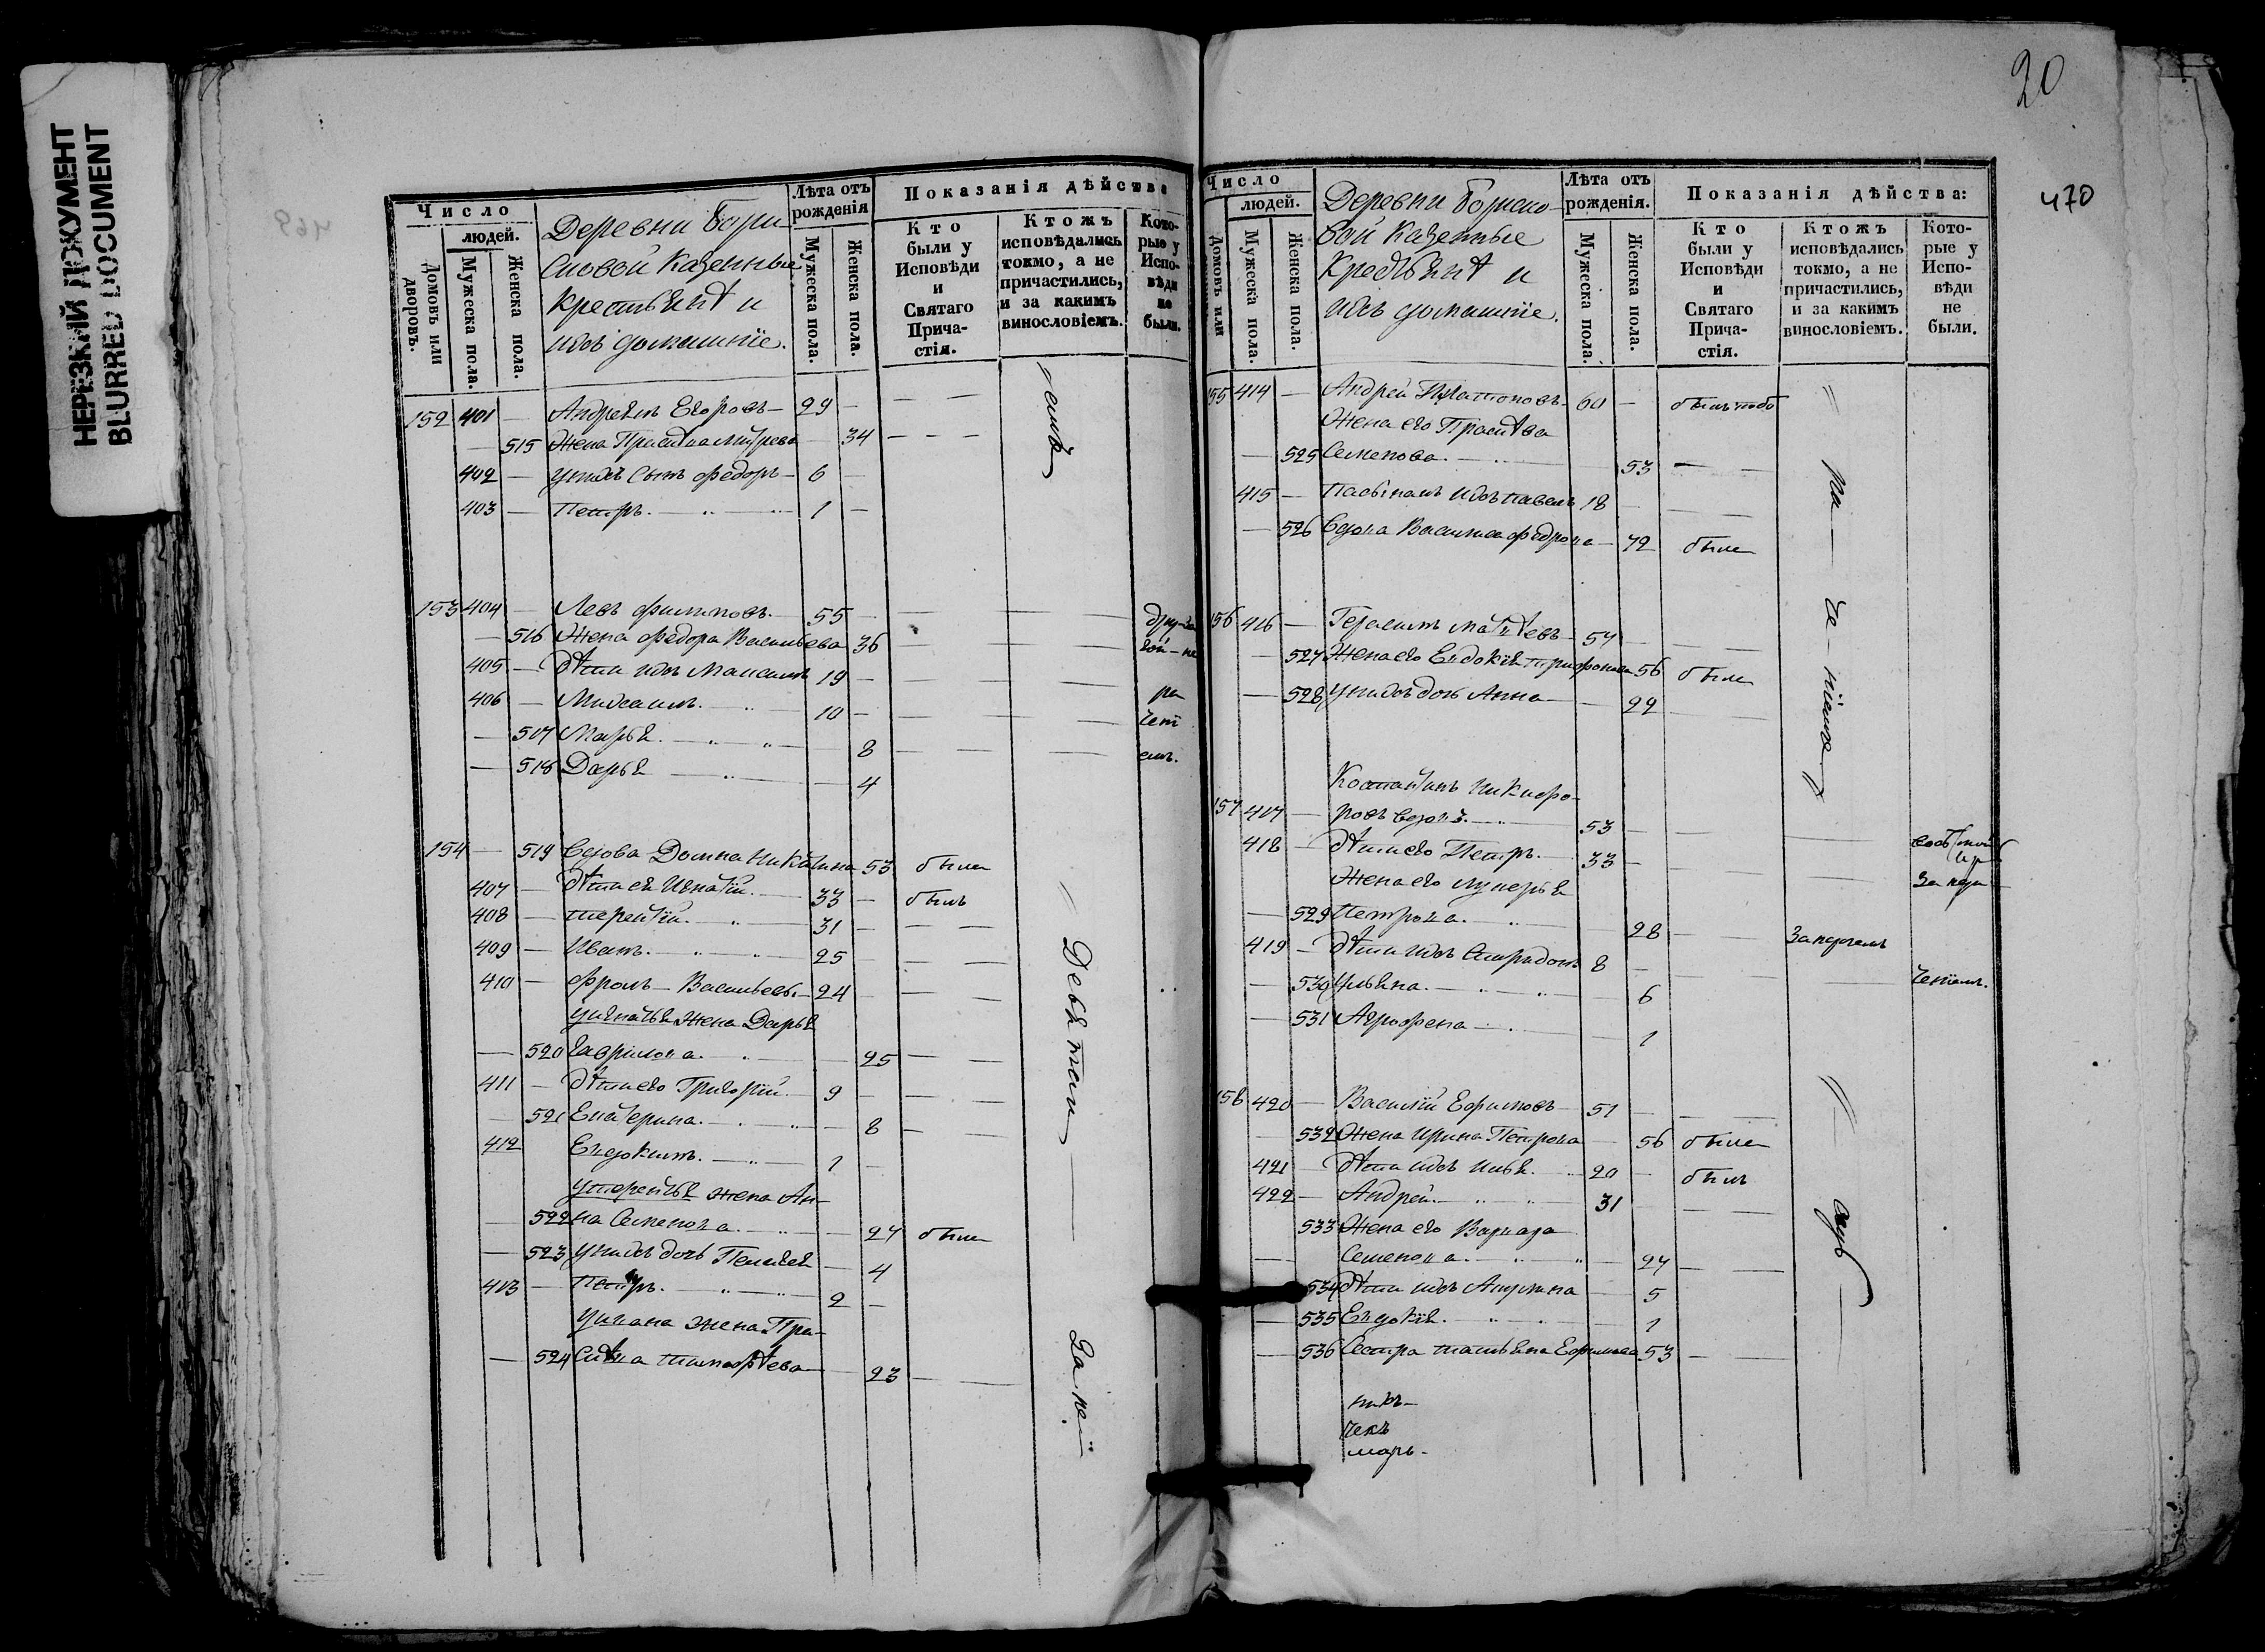 НЕРЕЗКИЙ ДОКУМЕНТ
BLURRED DOCUMENT
Число
людей.
Домовъ или дворовъ.
Мужеска пола.
Женска пола.
Деревни Бори
совой Казенные
крестьянѣ и
ихъ домашніе.
Лѣта отъ
рожденія
Мужеска пола.
Женска пола.
Показанія дѣйства
Кто
были у
Исповѣди
и
Святаго
Прича-
стія.
Ктожъ
исповѣдались
токмо, а не
причастились,
и за какимъ
винословіемъ.
Кото-
рые у
Испо-
вѣди
не
были.
152 401 — Андреянъ Егоровъ — 29 —
— 515 Жена 34
402 — У нихъ сынъ Федоръ — 6 —
403 — Петръ. 1 —
153 404 — Левъ Филиповъ. 55 —
— 516 Жена Федора Васильева 36
405 — дѣти ихъ Максимъ 19 —
406 — 10 —
— 517 Марья. 8
— 518 Дарья 4
154 — 519 Вдова Домна Никитина 53 была
407 — дѣти ея Игнатій. 33 — былъ
408 — Терентій. 31 —
409 — Иванъ. 25 —
410 — Фролъ Васильевъ — 24 —
У Игнатья Жена Дарья
— 520 Гаврилова. 25
411 — дѣти его Григорій. 9 —
— 521 Екатерина. 8
412 Евдокимъ. 1 —
У Терентья жена Ан-
— 522 на Семенова. 27 была
— 523 У нихъ дочь Пелагея 4
413 — Петръ. 2 —
У Ивана жена Пра-
— 524 сковья Тимофѣева 23
20
470
Число
людей.
Домовъ или
Мужеска пола.
Женска пола.
Деревни Борисо-
вой Казенные
Крестьянѣ и
ихъ домашніе.
Лѣта отъ
рожденія.
Мужеска пола.
Женска пола.
Показанія дѣйства:
Кто
были у
Исповѣди
и
Святаго
Прича-
стія.
Ктожъ
исповѣдались
токмо, а не
причастились,
и за какимъ
винословіемъ.
Кото-
рые у
Испо-
вѣди
не
были.
155 414 — Андрей Платоновъ 60 —
Жена его
— 525 Семенова. 53
415 — Пасынокъ ихъ Павелъ 18
— 526 Вдова Василиса 72 была
156 416 — Герасимъ Матвѣевъ 57 —
— 527 Жена его Евдокія Трифонова 56 была
— 528 У нихъ дочь Анна — 22
Костантинъ Никифо-
157 417 — ровъ вдовъ. 53 —
418 — дѣти его Петръ. 33 —
Жена его Лукерья
— 529 Петрова. 28
419 — дѣти ихъ Спиридонъ 8 —
— 530 Ульяна. 6
— 531 Агрофена 1
158 420 — Василій Ефимовъ 51 —
532 Жена Ирина Петрова — 56 была
421 — дѣти ихъ Илья. 20 — былъ
422 — Андрей. 31
533 Жена его Варвара
— Семенова. 27
534 дѣти ихъ Акулина 5
— 535 Евдокія. 1
— 536 Сестра Татьяна Ефимова 53